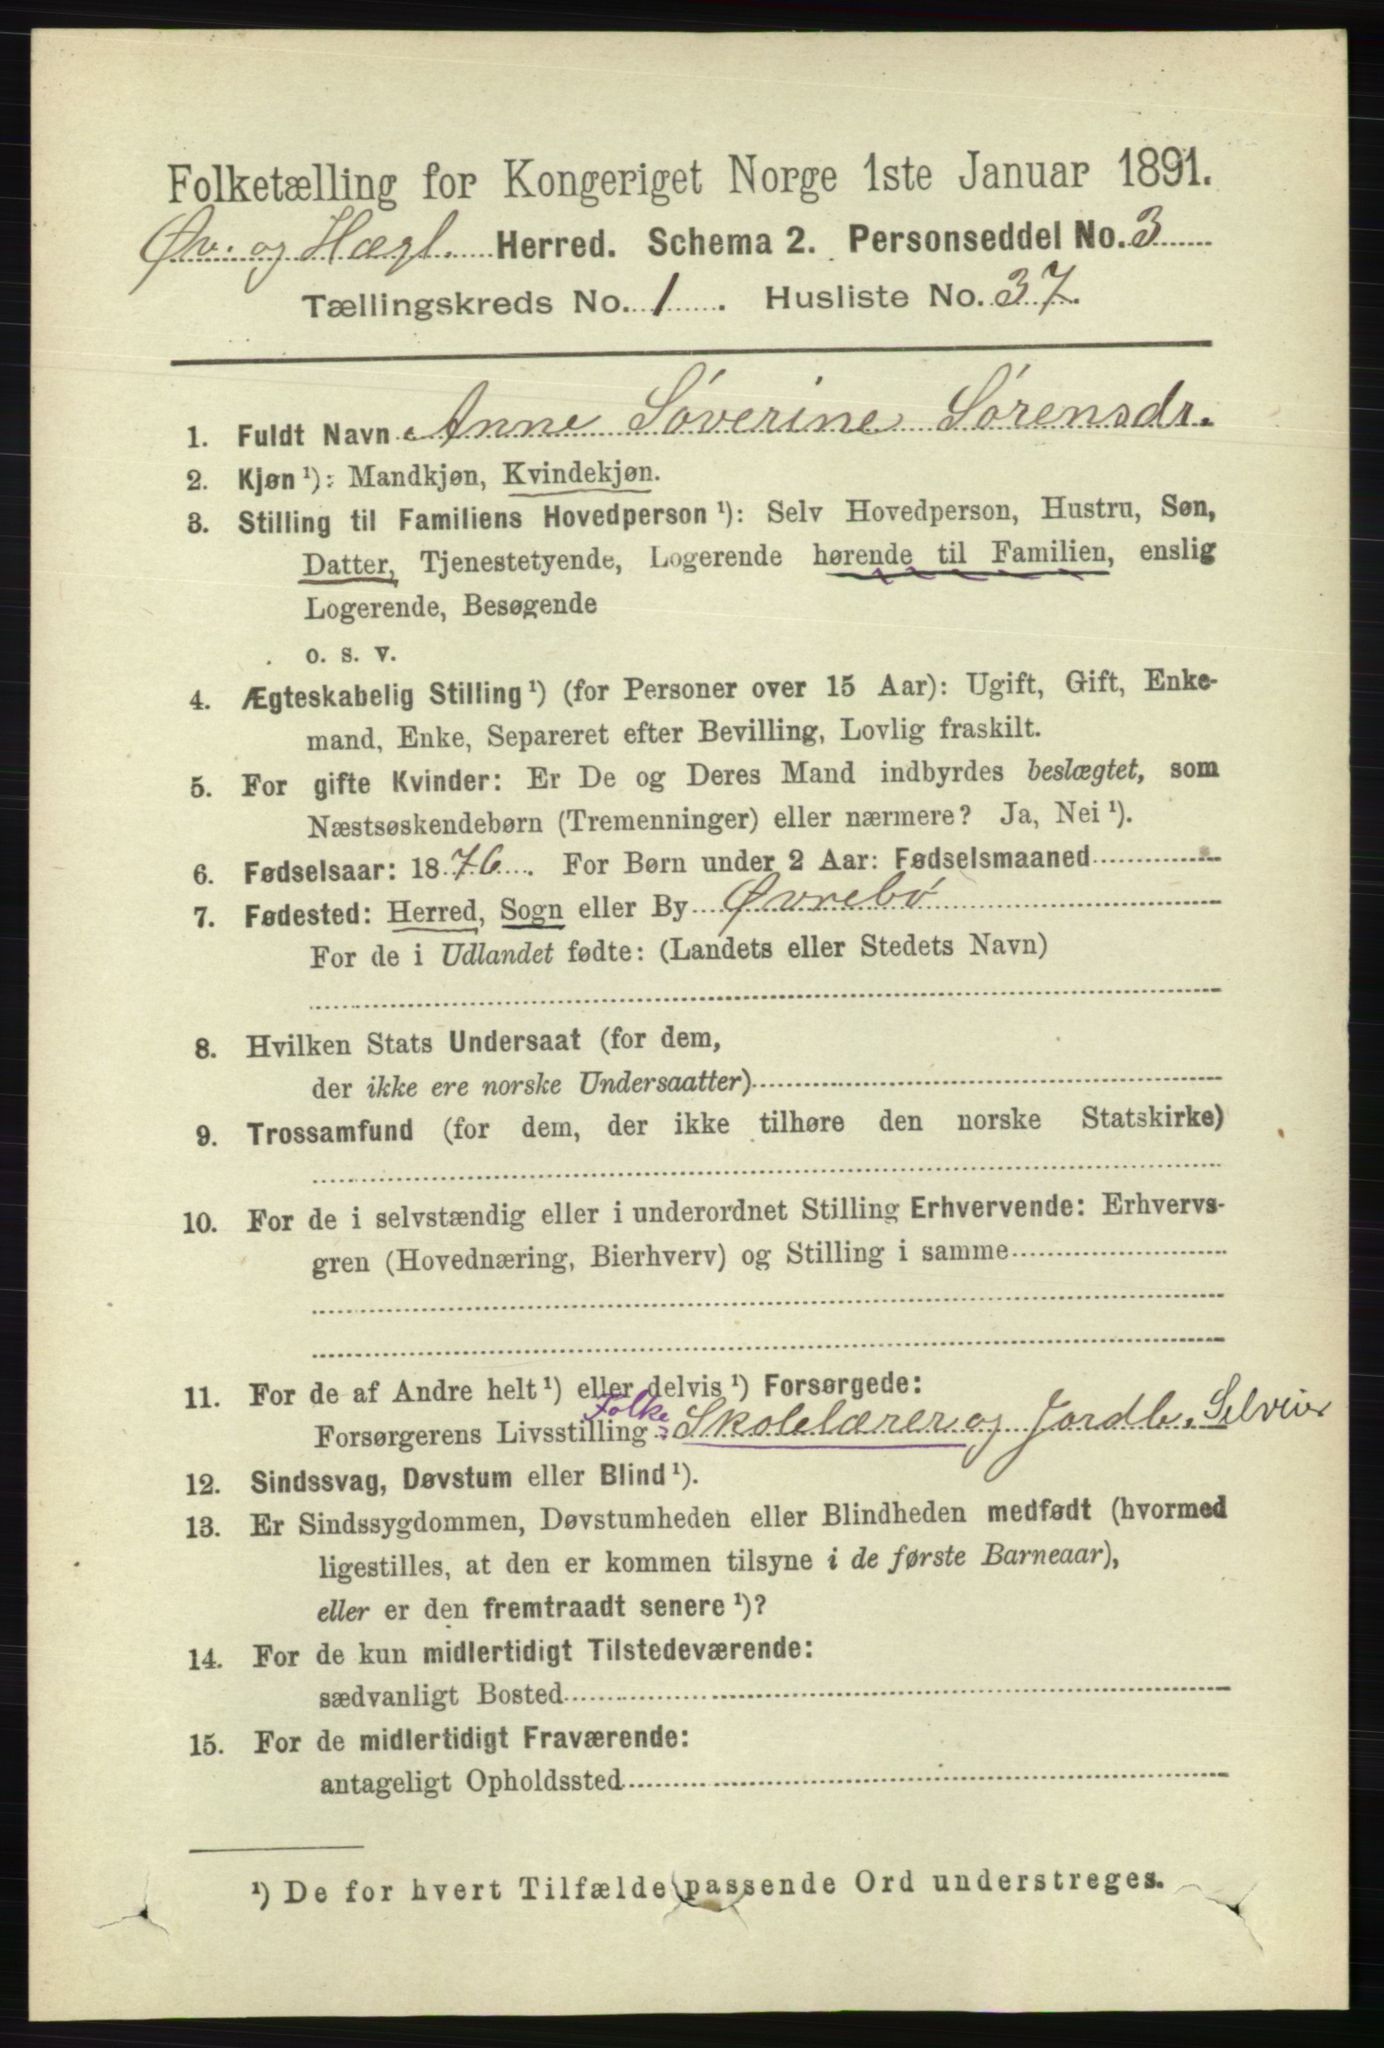 Folketælling for Kongeriget Norge 1ste Januar 1891.
Øv. og Hægl. Herred. Schema 2. Personseddel No. 3
Tællingskreds No. 1. Husliste No. 37.
1. Fuldt Navn Anne Söverine Sörensdr.
2. Kjøn ¹): Mandkjøn, Kvindekjøn.
3. Stilling til Familiens Hovedperson ¹): Selv Hovedperson, Hustru, Søn,
Datter, Tjenestetyende, Logerende hørende til Familien, enslig
Logerende, Besøgende
o. s. v.
4. Ægteskabelig Stilling ¹) (for Personer over 15 Aar): Ugift, Gift, Enke-
mand, Enke, Separeret efter Bevilling, Lovlig fraskilt.
5. For gifte Kvinder: Er De og Deres Mand indbyrdes beslægtet, som
Næstsøskendebørn (Tremenninger) eller nærmere? Ja, Nei ¹).
6. Fødselsaar: 1876. For Børn under 2 Aar: Fødselsmaaned
7. Fødested: Herred, Sogn eller By Øvrebö
For de i Udlandet fødte: (Landets eller Stedets Navn)
8. Hvilken Stats Undersaat (for dem,
der ikke ere norske Undersaatter)
9. Trossamfund (for dem, der ikke tilhøre den norske Statskirke)
10. For de i selvstændig eller i underordnet Stilling Erhvervende: Erhvervs-
gren (Hovednæring, Bierhverv) og Stilling i samme
11. For de af Andre helt ¹) eller delvis ¹) Forsørgede:
Folke
Forsørgerens Livsstilling Skolelærer og Jordb. Selveier
12. Sindssvag, Døvstum eller Blind ¹).
13. Er Sindssygdommen, Døvstumheden eller Blindheden medfødt (hvormed
ligestilles, at den er kommen tilsyne i de første Barneaar),
eller er den fremtraadt senere ¹)?
14. For de kun midlertidigt Tilstedeværende:
sædvanligt Bosted
15. For de midlertidigt Fraværende:
antageligt Opholdssted
¹) De for hvert Tilfælde passende Ord understreges.